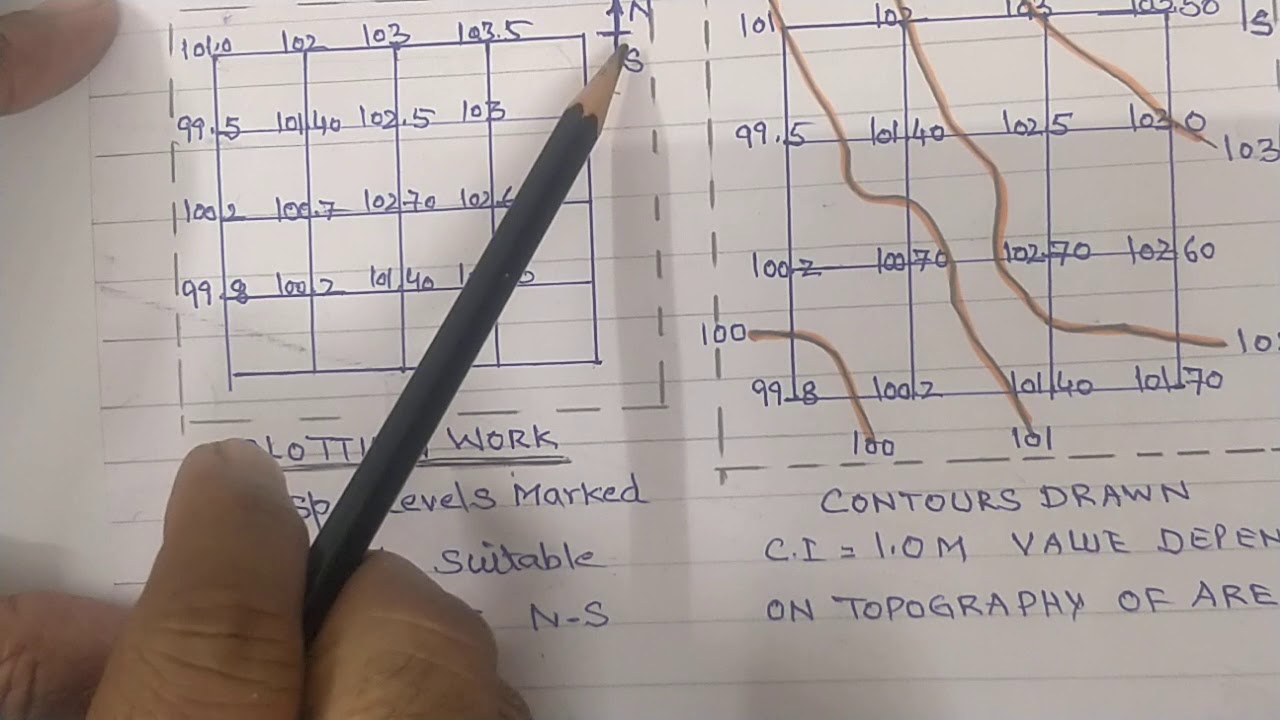 N
101.0 102 103 103.5
S
99.5 101.40 102.5 103
100.2 100.7 102.70
99.8 100.2 101.40
WORK
Levels Marked
Suitable
N-S
101 102 103 103.50
99.5 101.40 102.5 103.0
103
100.2 100.70 102.70 102.60
100
99.8 100.2 101.40 101.70
100 101
CONTOURS DRAWN
C.I = 1.0M VALUE
ON TOPOGRAPHY OF